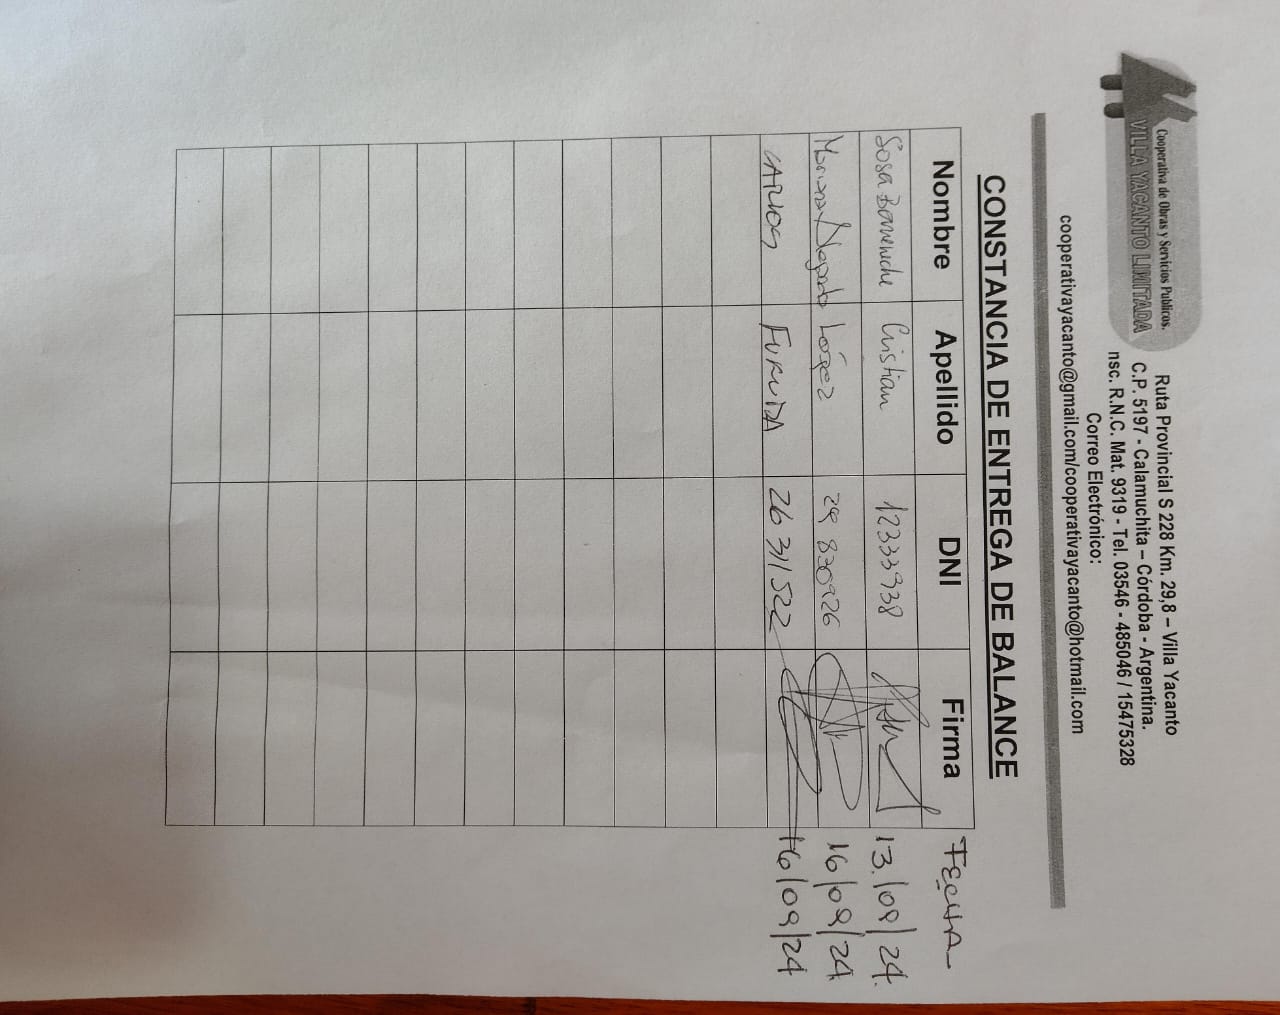 Cooperativa de Obras y Servicios Publicos.
VILLA YACANTO LIMITADA
Ruta Provincial S 228 Km. 29,8 – Villa Yacanto
C.P. 5197 - Calamuchita – Córdoba - Argentina.
nsc. R.N.C. Mat. 9319 - Tel. 03546 - 485046 / 15475328
Correo Electrónico:
cooperativayacanto@gmail.com/cooperativayacanto@hotmail.com
CONSTANCIA DE ENTREGA DE BALANCE
Nombre Apellido DNI Firma FECHA
Sosa Cristian 12333938 13/09/24
Mariana López 29 830926 16/09/24
CARLOS FURUDA 26 311 522 16/09/24